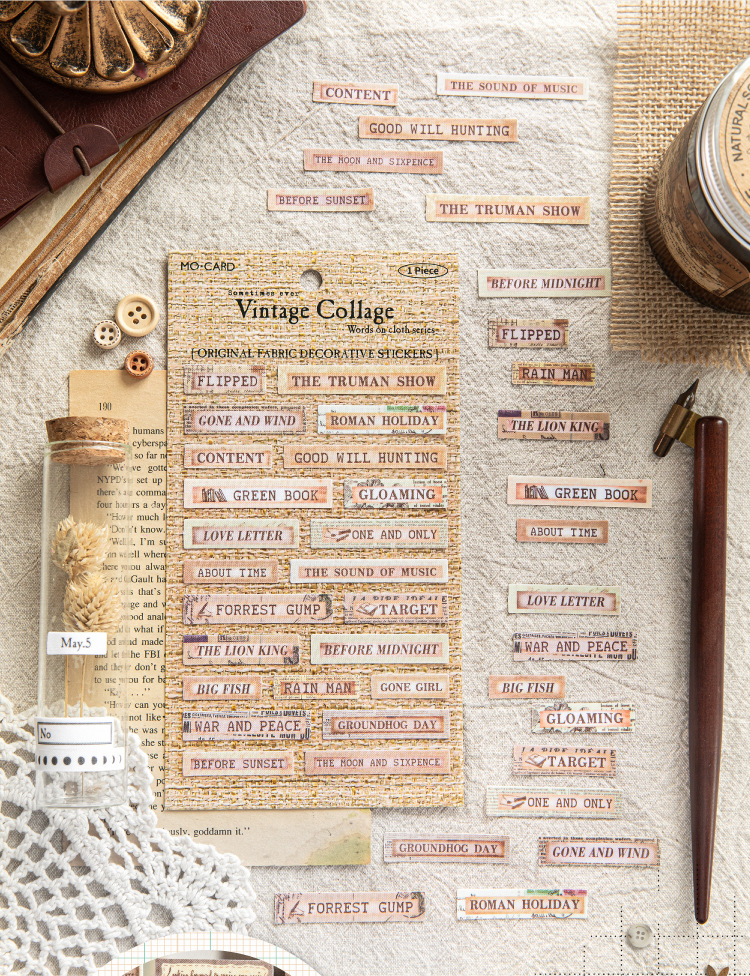 CONTENT
THE SOUND OF MUSIC
GOOD WILL HUNTING
THE MOON AND SIXPENCE
BEFORE SUNSET
THE TRUMAN SHOW
NATURAL
MO·CARD
1 Piece
Sometimes ever
Vintage Collage
Words on cloth series
[ ORIGINAL FABRIC DECORATIVE STICKERS ]
FLIPPED
THE TRUMAN SHOW
GONE AND WIND
ROMAN HOLIDAY
CONTENT
GOOD WILL HUNTING
GREEN BOOK
GLOAMING
LOVE LETTER
ONE AND ONLY
ABOUT TIME
THE SOUND OF MUSIC
FORREST GUMP
TARGET
THE LION KING
BEFORE MIDNIGHT
BIG FISH
RAIN MAN
GONE GIRL
WAR AND PEACE
GROUNDHOG DAY
BEFORE SUNSET
THE MOON AND SIXPENCE
BEFORE MIDNIGHT
FLIPPED
RAIN MAN
THE LION KING
GREEN BOOK
ABOUT TIME
LOVE LETTER
WAR AND PEACE
BIG FISH
GLOAMING
TARGET
ONE AND ONLY
GROUNDHOG DAY
GONE AND WIND
FORREST GUMP
ROMAN HOLIDAY
190
humans
so far
NYPD's set up
"Don't know.
the FBI
May.5
No
goddamn it."